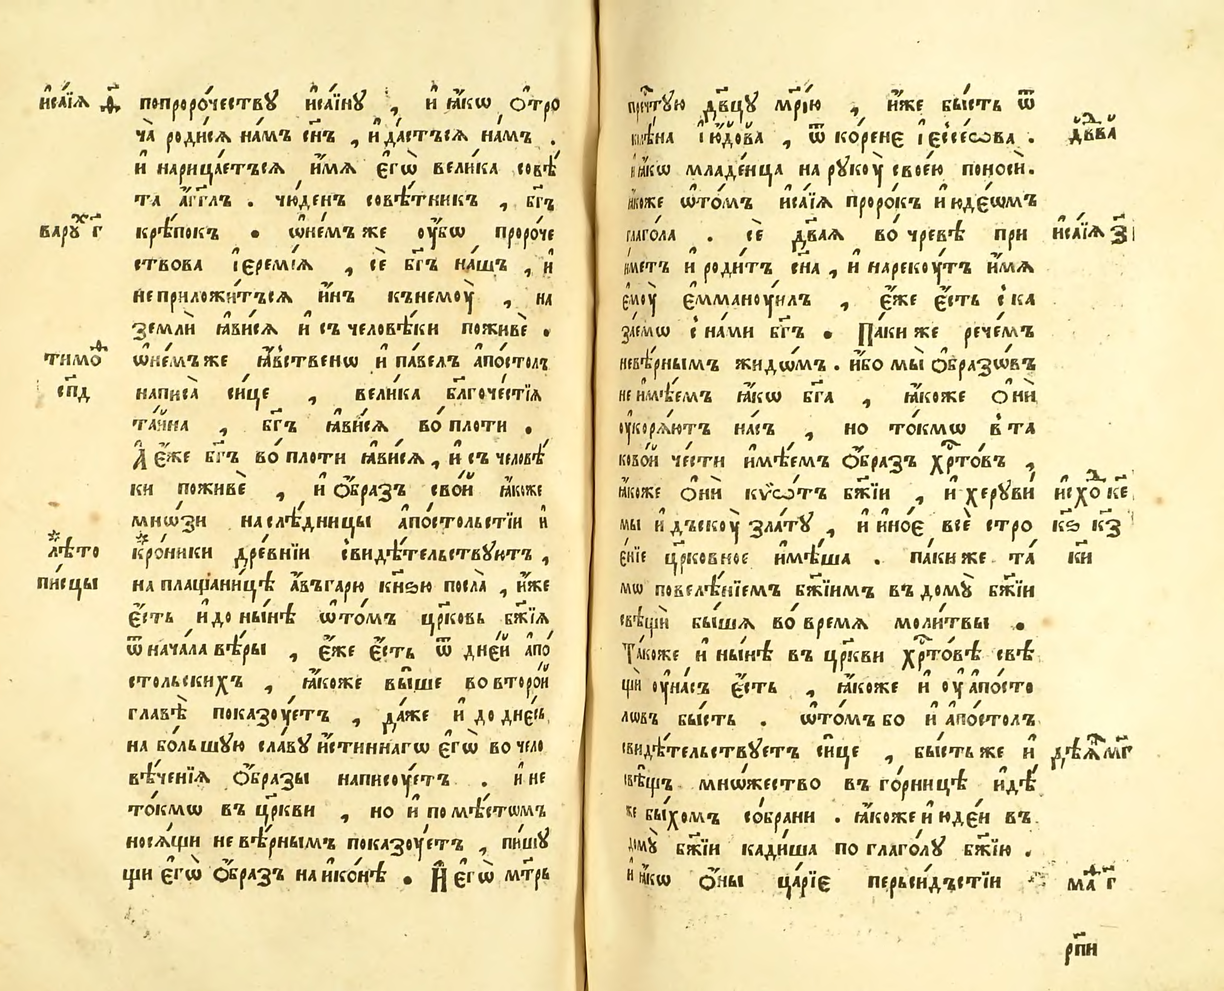 и҆са́їѧ ѳ҃ попроро́чествꙋ и҆са́їнꙋ , и҆ ꙗ҆́кѡ ѻ҆́тро
ча̀ роди́сѧ на́мъ сн҃ъ , и҆ да́стъсѧ на́мъ .
и҆ нарица́етъсѧ и҆́мѧ є҆гѡ̀ вели́ка совѣ́
та а҆́гг҃лъ . чю́денъ совѣ́тникъ , бг҃ъ
варꙋ́х г҃ крѣ́покъ . ѡ҆не́мъже ᲂу҆́бѡ проро́че
ствова і҆еремі́ѧ , се́ бг҃ъ на́шъ , и҆
неприложи́тъсѧ и҆́нъ къ немоу̀ , на
землѝ ꙗ҆ви́сѧ и҆ съ человѣ́ки поживѐ .
тимоѳ ѡ҆не́мъже ꙗ҆́вственѡ и҆ па́велъ а҆по́столъ
сп҃д написа̀ си́це , вели́ка бл҃гоче́стїѧ
та́йна , бг҃ъ ꙗ҆ви́сѧ во́ плоти .
А҆ є҆́же бг҃ъ во́ плоти ꙗ҆ви́сѧ , и҆ съ человѣ́
ки поживѐ , и҆ ѻ҆́бразъ сво́й ꙗ҆́коже
мно́ѕи наслѣ́дницы а҆по́стольстїи и҆
лѣ́то * кро́ники дре́внїи свидѣ́тельствꙋютъ ,
пи́сцы на плащани́цѣ а҆́въгарю кн҃ѕю посла̀ , и҆́же
є҆́сть и҆ до ны́нѣ ѡ҆то́мъ цр҃ковь бж҃їѧ
ѿ нача́ла вѣ́ры , є҆́же є҆́сть ѿ дне́й а҆по́
стольскихъ , ꙗ҆́коже вы́ше во второ́й
главѣ̀ показоу́етъ , да́же и҆ до дне́сь
на бо́льшую сла́вꙋ и҆́стиннагѡ є҆гѡ̀ во чело
вѣ́ченїѧ ѻ҆́бразы написоу́етъ . и҆ не
то́кмѡ въ цр҃кви , но и҆ по мѣ́стѡмъ
носѧ́щи невѣ́рнымъ показоу́етъ , пи́шꙋ
щи є҆гѡ̀ ѻ҆́бразъ на и҆ко́нѣ . И҆ є҆гѡ̀ мт҃рь
пречⷭ҇тую дв҃цꙋ мр҃і́ю , и҆́же бы́сть ѿ
колѣ́на і҆ю́дова , ѿ ко́рене і҆ессе́ова . дв҃ва
и҆ ꙗ҆́кѡ младе́нца на рꙋкоу̀ своє́ю поносѝ.
ꙗ҆́коже ѡ҆то́мъ и҆са́їѧ проро́къ и҆юде́ѡмъ
глаго́ла . се́ дв҃аѧ во́ чревѣ при и҆са́їѧ з҃
и́метъ и҆ роди́тъ сн҃а , и҆ нарекоу́тъ и҆́мѧ
є҆моу̀ є҆мманоу́илъ , є҆́же є҆́сть ска
за́емѡ с на́ми бг҃ъ . Па́ки же рече́мъ
невѣ́рнымъ жидѡ́мъ . и҆́бо мы̀ ѻ҆́бразѡвъ
не и҆мѣ́емъ ꙗ҆́кѡ бг҃а , ꙗ҆́коже ѻ҆нѝ
ᲂу҆корѧ́ютъ на́съ , но то́кмѡ в та
ково́й че́сти и҆мѣ́емъ ѻ҆́бразъ хрⷭ҇то́въ ,
ꙗ҆́коже ѻ҆нѝ кѵѡ́тъ бж҃їи , и҆ херꙋви́ и҆схо́ ке҃
мы и҆ дъскоу̀ зла́тꙋ , и҆ и҆но́е всѐ стро кѕ҃ кз҃
е́нїе цр҃ковное и҆мѣ́ша . па́ки же та́ ки
мѡ повелѣ́нїемъ бж҃їимъ въ домꙋ̀ бж҃їи
свѣ́щи бы́шѧ во́ времѧ моли́твы .
Та́коже и҆ ны́нѣ въ цр҃кви хрⷭ҇то́вѣ свѣ́
щи ᲂу҆на́съ є҆́сть , ꙗ҆́коже и҆ ᲂу҆ а҆по́сто
лѡвъ бы́сть . ѡ҆то́мъ бо и҆ а҆по́столъ
свидѣ́тельствꙋетъ си́це , бы́сть же и҆ дѣѧ́ мг҃
свѣ́щъ мно́жество въ го́рницѣ и҆дѣ́
же бы́хомъ со́брани . ꙗ҆́коже и҆ и҆юде́и въ
домꙋ̀ бж҃їи кади́ша по глаго́лꙋ бж҃їю .
и҆ ꙗ҆́кѡ ѻ҆́ны ца́рїе перьси́дъстїи ма҃ г҃
рп҃и